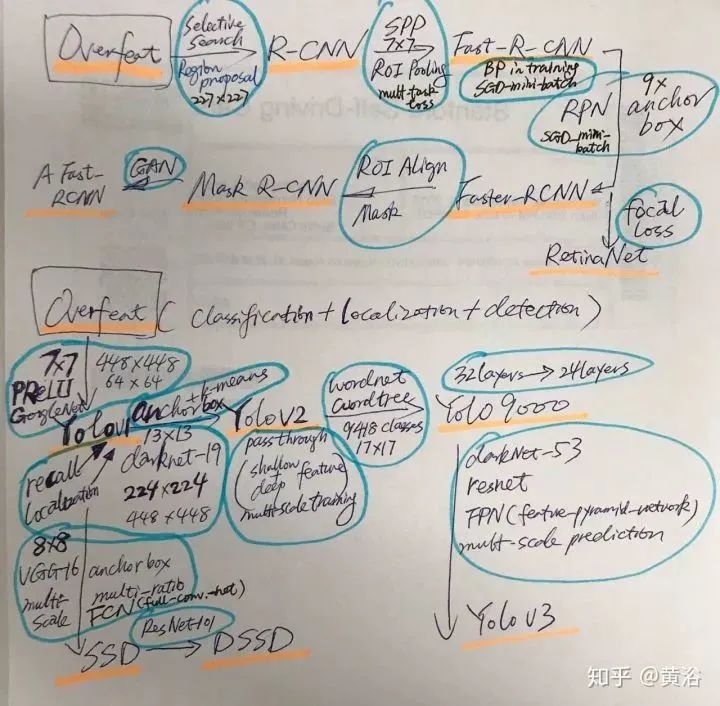 Overfeat
Selective
Search
Region
proposal
227×227
R-CNN
SPP
7×7
ROI Pooling
mult-task
loss
Fast-R-CNN
BP in training
SGD-mini-batch
RPN
SGD_mini-
batch
9×
anchor
box
A Fast-
RCNN
GAN
Mask R-CNN
ROI Align
Mask
Faster-RCNN
focal
loss
RetinaNet
Overfeat (classification+localization+detection)
7×7
PReLU
GoogleNet
448×448
64×64
Yolov1
anchor box
+k-means
13×13
YoloV2
wordnet
wordtree
9418 classes
17×17
32layers→24layers
Yolo 9000
recall
localization
darknet-19
224×224
448×448
passthrough
(shallow
deep feature)
multi-scale training
darkNet-53
resnet
FPN(feature-pyramid-network)
mult-scale prediction
8×8
VGG-16
multi-
scale
anchorbox
multi-ratio
FCN(full-conv.-net)
ResNet-101
SSD
DSSD
Yolo v3
知乎 @黄浴